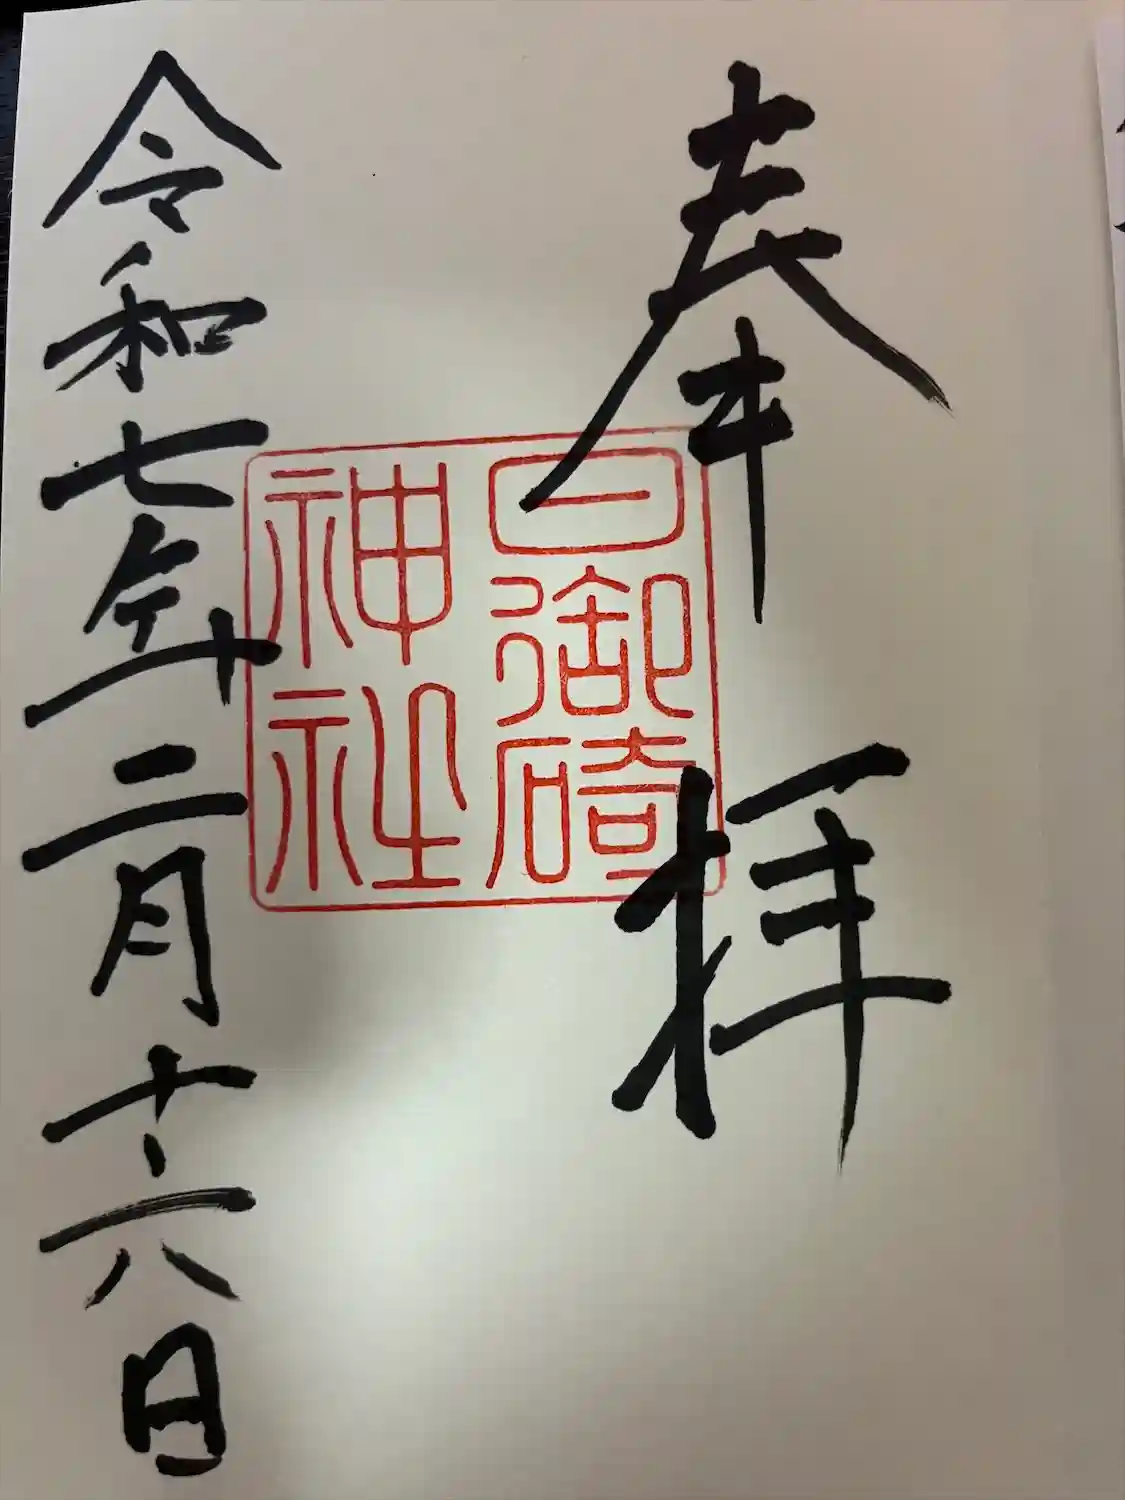 奉拝
日御碕
神社
令和七年二月十六日